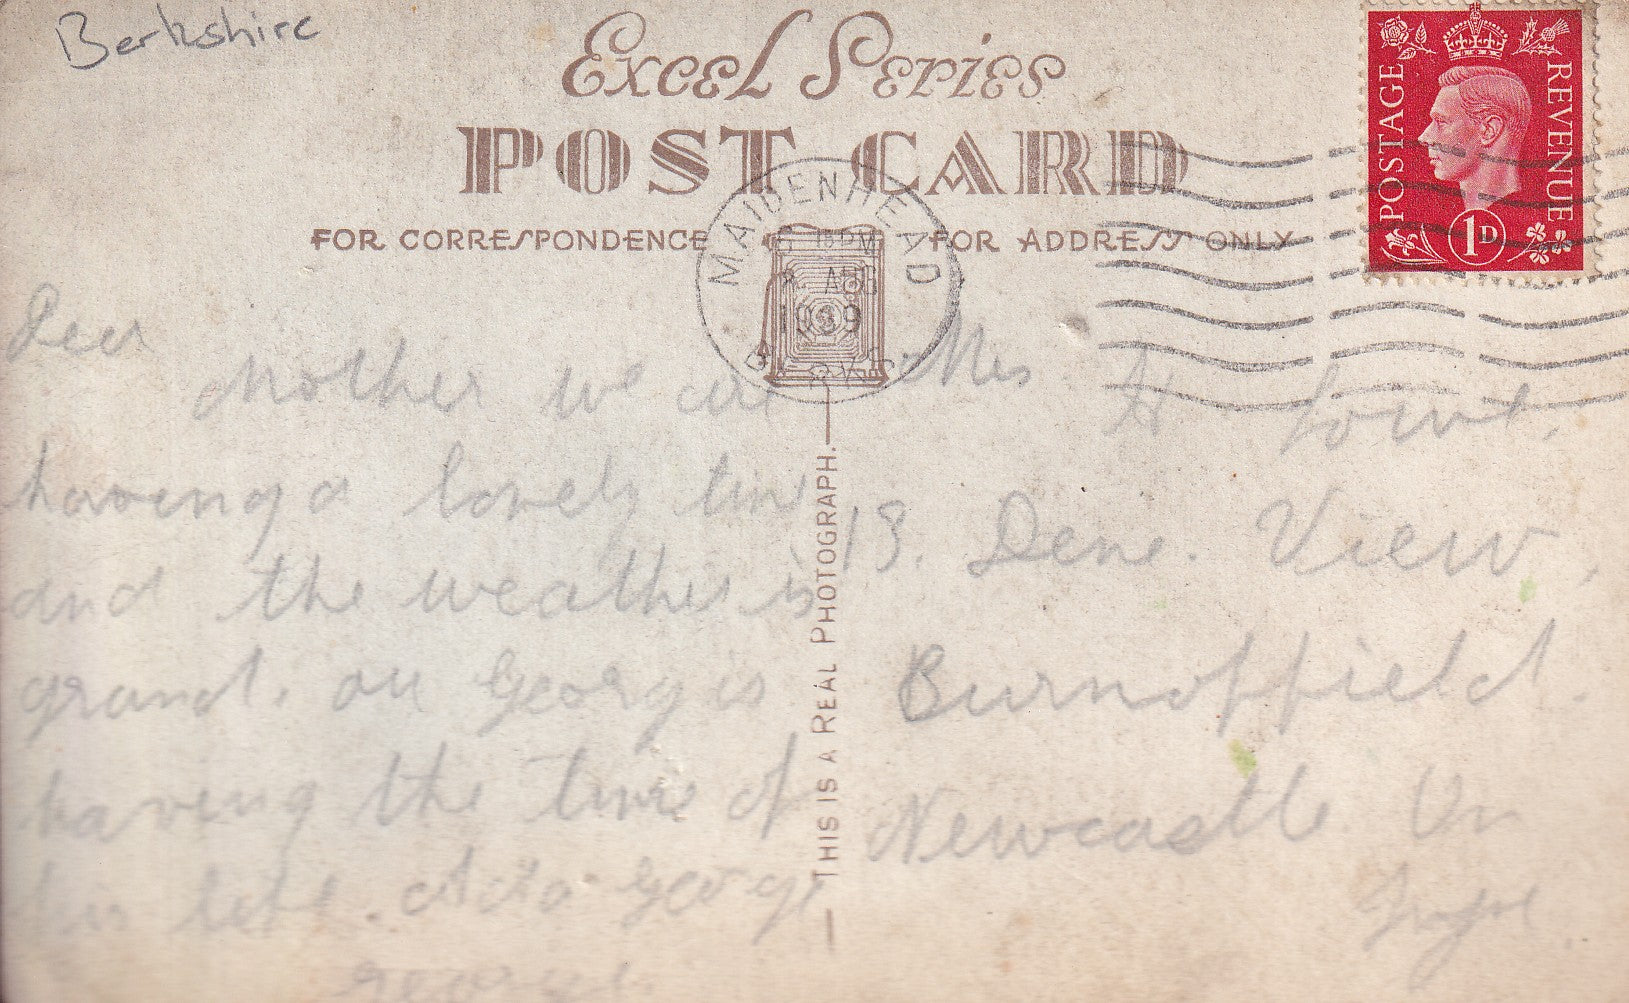 Berkshire
Excel Series
POST CARD
FOR CORRESPONDENCE
FOR ADDRESS ONLY
POSTAGE REVENUE
1D
MAIDENHEAD
AUG
1939
BERKS
THIS IS A REAL PHOTOGRAPH.
Dear
Mother we are
having a lovely tim
and the weather is
grand. our Georg is
having the time of
his life.
Mrs H
13. Dene. View,
Burnopfield.
Newcastle On
Tyne.